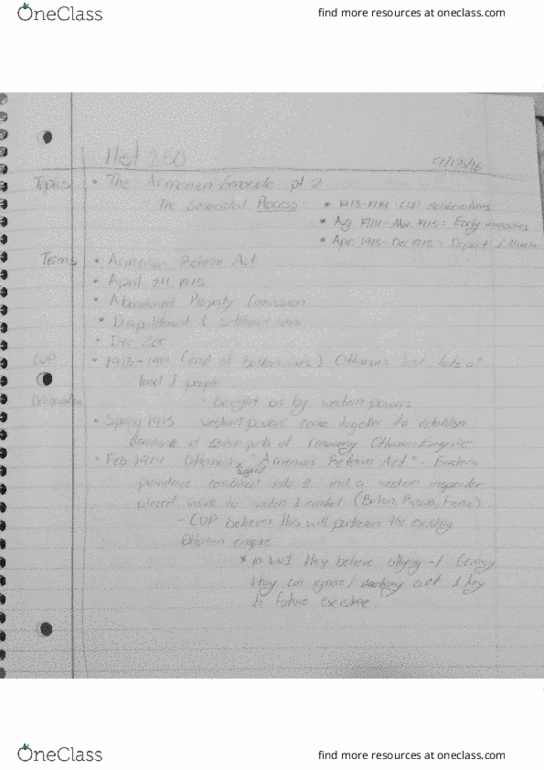 OneClass
find more resources at oneclass.com
Hist 250
Topics • The Armenian Genocide pt 2
- The Genocidal Process: * 1913-1914: CUP deliberations
* Aug 1914 - Mar 1915: Early measures
* Apr 1915 - Dec 1915: Deport &
Terms • Armenian Reform Act
• April 24 1915
• Abandoned Property Comission
•
• Der Zor
CUP • 1913-1914 (end of Balkan wars) Ottomans lost lots of
land & people
- brought on by western powers
• Spring 1913 western powers come together to establish
of certain parts of remaining Ottoman Empire
• Feb 1914 Ottomans signed "Armenian Reform Act" - Eastern
provinces combined into 2 and a western inspector
placed inside to & control (Britain, Russia, France)
- CUP believes this will partition the existing
Ottoman empire
* in WWI they believe allying w/ Germany
they can ignore act & key
to future existence
OneClass
find more resources at oneclass.com